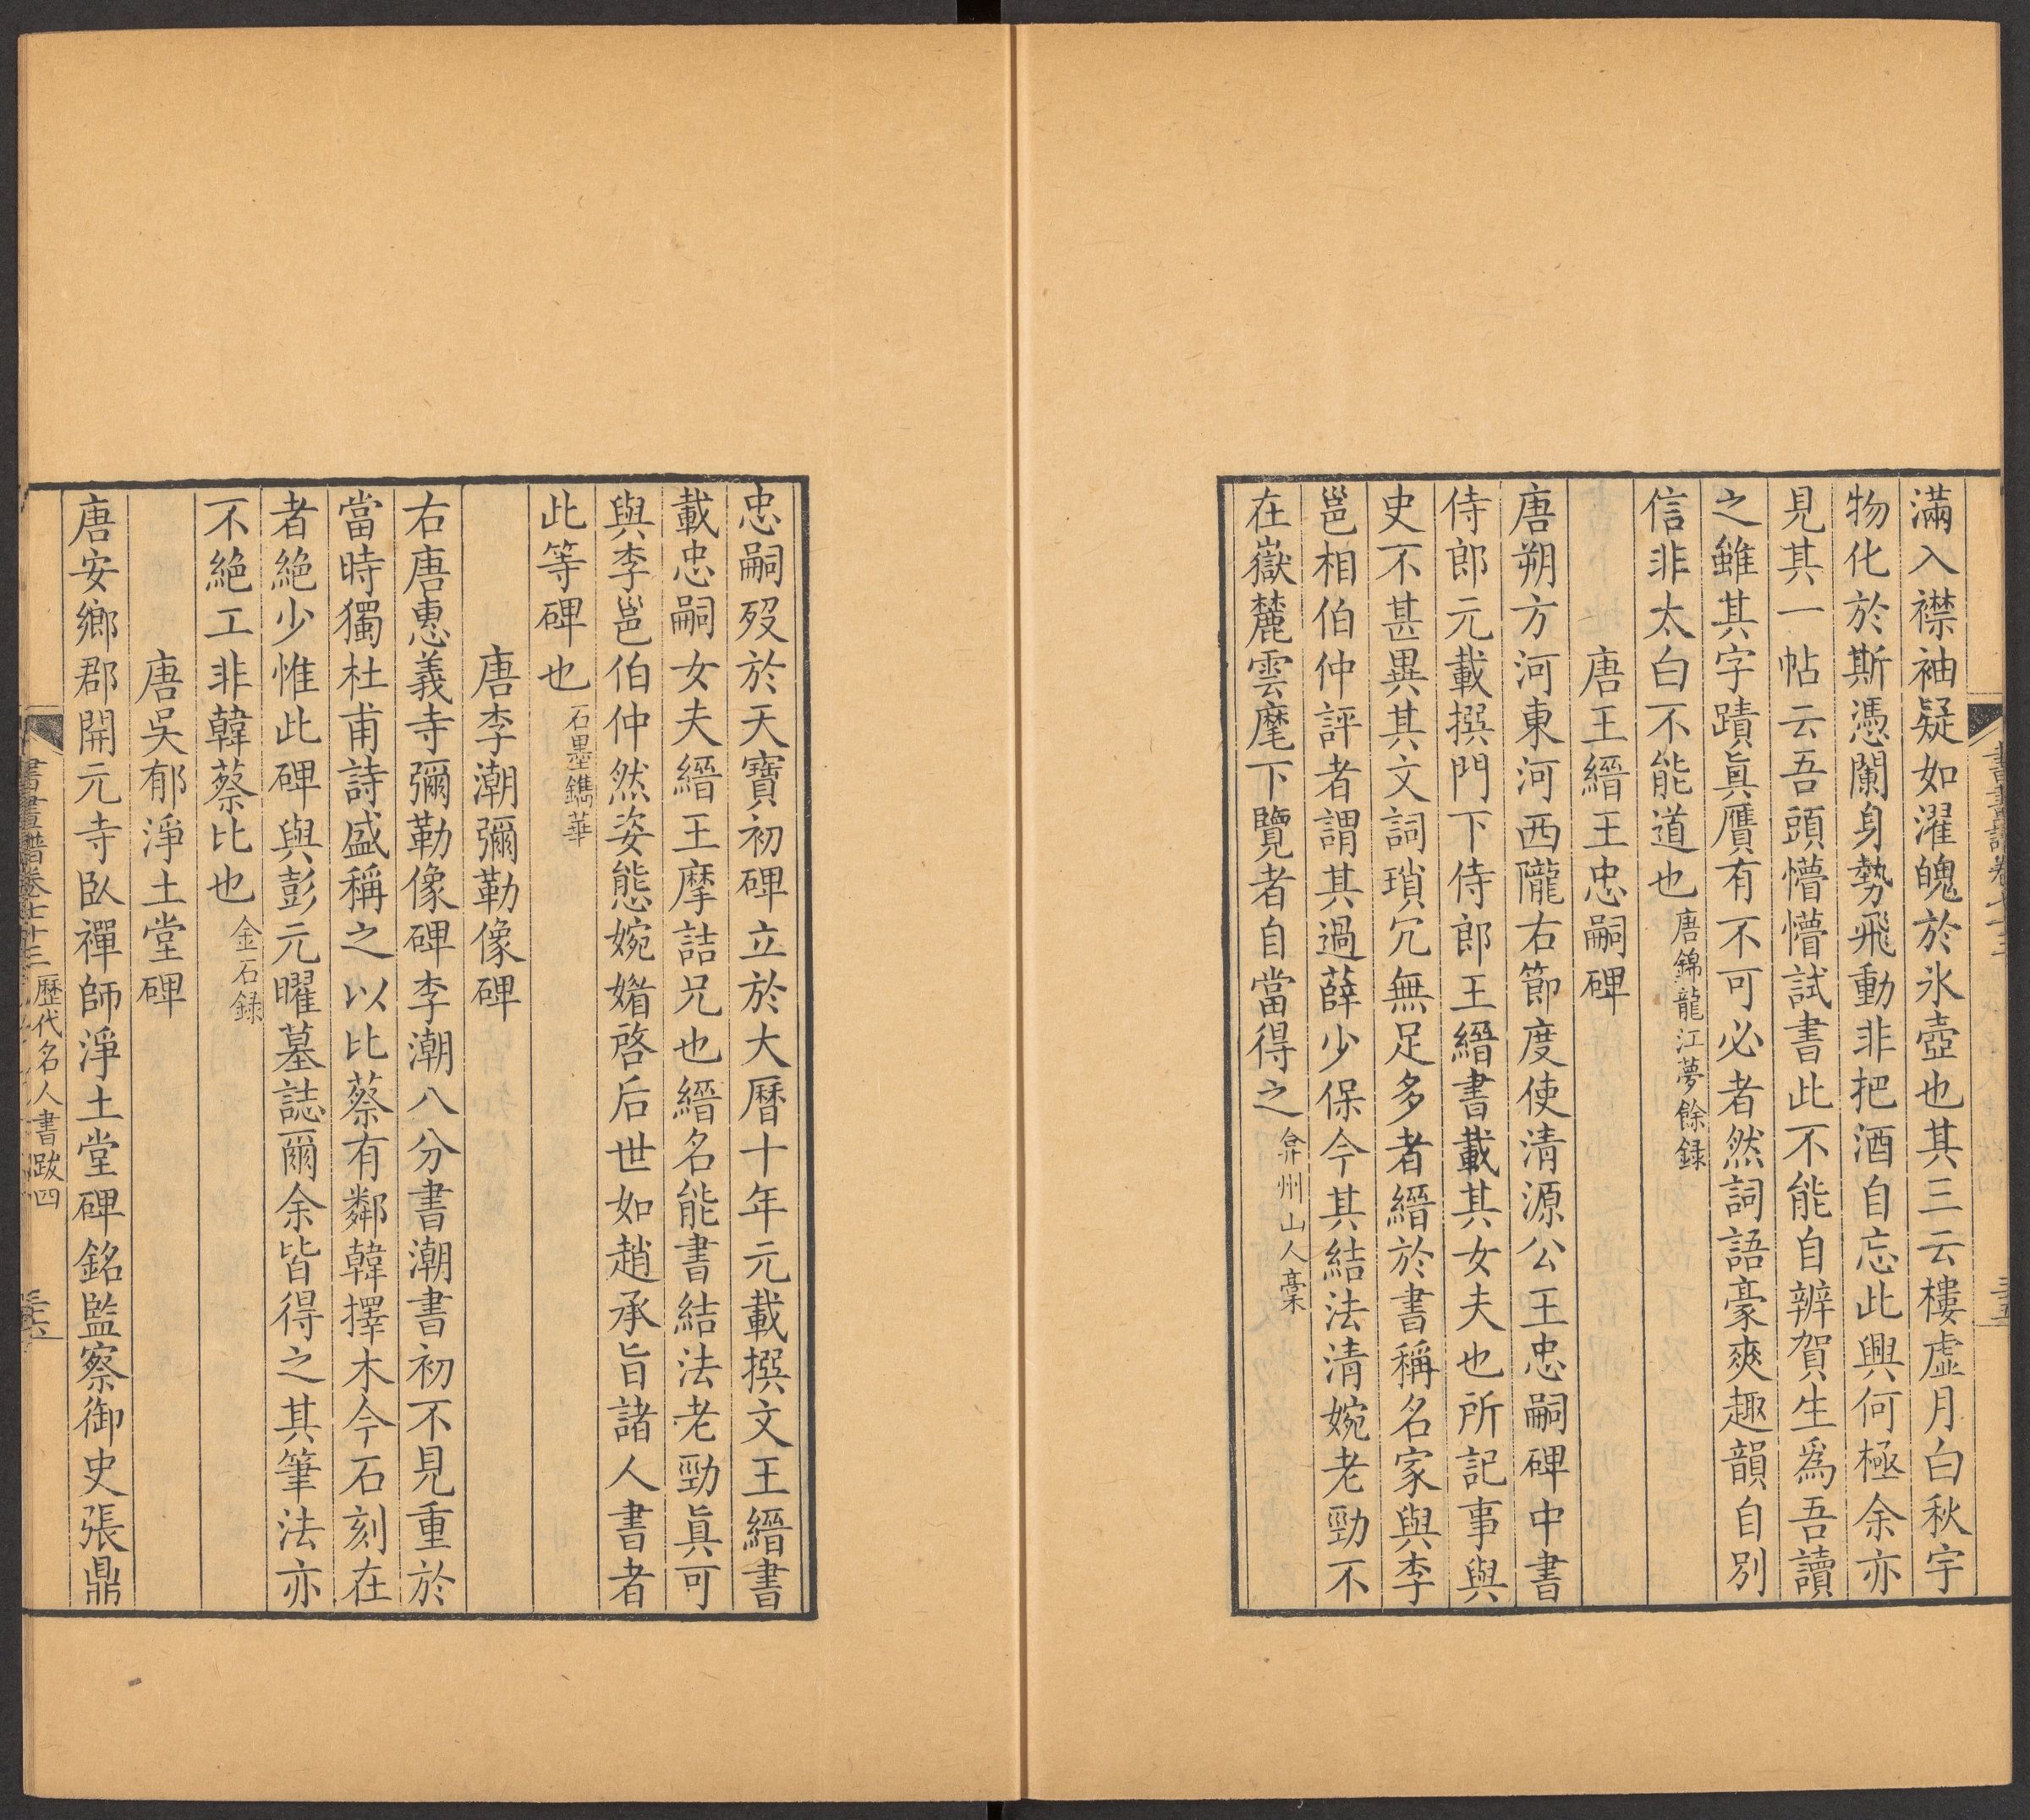 滿入襟袖疑如濯魄於氷壺也其三云樓虛月白秋宇
物化於斯憑闌身勢飛動非把酒自忘此興何極余亦
見其一帖云吾頭懵懵試書此不能自辨賀生爲吾讀
之雖其字蹟眞贋有不可必者然詞語豪爽趣韻自別
信非太白不能道也唐錦龍江夢餘録
唐王縉王忠嗣碑
唐朔方河東河西隴右節度使清源公王忠嗣碑中書
侍郎元載撰門下侍郎王縉書載其女夫也所記事與
史不甚異其文詞瑣冗無足多者縉於書稱名家與李
邕相伯仲評者謂其過薛少保今其結法清婉老勁不
在嶽麓雲麾下覽者自當得之弇州山人藁
忠嗣殁於天寶初碑立於大曆十年元載撰文王縉書
載忠嗣女夫縉王摩詰兄也縉名能書結法老勁眞可
與李邕伯仲然姿態婉媚啓后世如趙承旨諸人書者
此等碑也石墨鐫華
唐李潮彌勒像碑
右唐惠義寺彌勒像碑李潮八分書潮書初不見重於
當時獨杜甫詩盛稱之以比蔡有鄰韓擇木今石刻在
者絶少惟此碑與彭元曜墓誌爾余皆得之其筆法亦
不絶工非韓蔡比也金石録
唐吳郁淨土堂碑
唐安鄉郡開元寺臥禪師淨土堂碑銘監察御史張鼎
書畫譜卷七十三 歷代名人書跋四